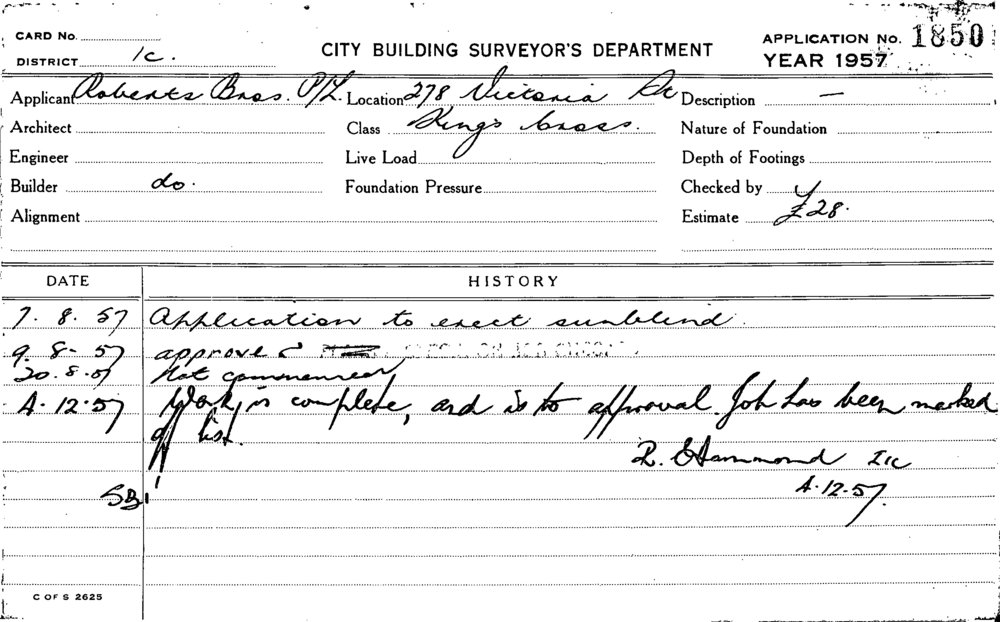 CARD No.
DISTRICT 1c.
CITY BUILDING SURVEYOR'S DEPARTMENT
APPLICATION No. 1850
YEAR 1957
Applicant Roberts Bros. P/L. Location 278 Victoria St Description —
Architect Class Kings Cross. Nature of Foundation
Engineer Live Load Depth of Footings
Builder do. Foundation Pressure Checked by
Alignment Estimate £28.
DATE HISTORY
7. 8. 57 Application to erect sunblind.
9. 8- 57 approved
20.8.57 Not commenced
4.12.57 Work is complete, and is to approval. Job has been marked
off list.
R. Hammond Ic
4.12.57.
SB1
C OF S 2625